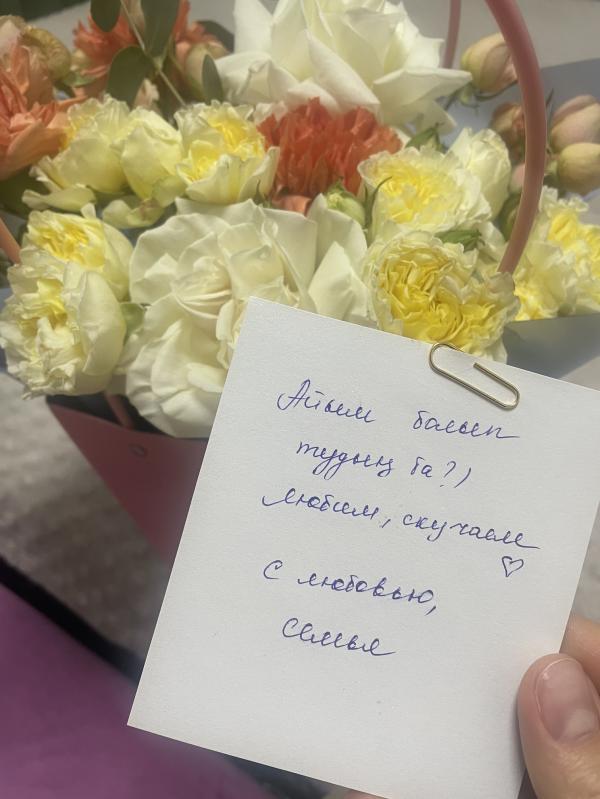 Айым болып
тудың ба?)
Любим, скучаем
♡
С любовью,
Семья